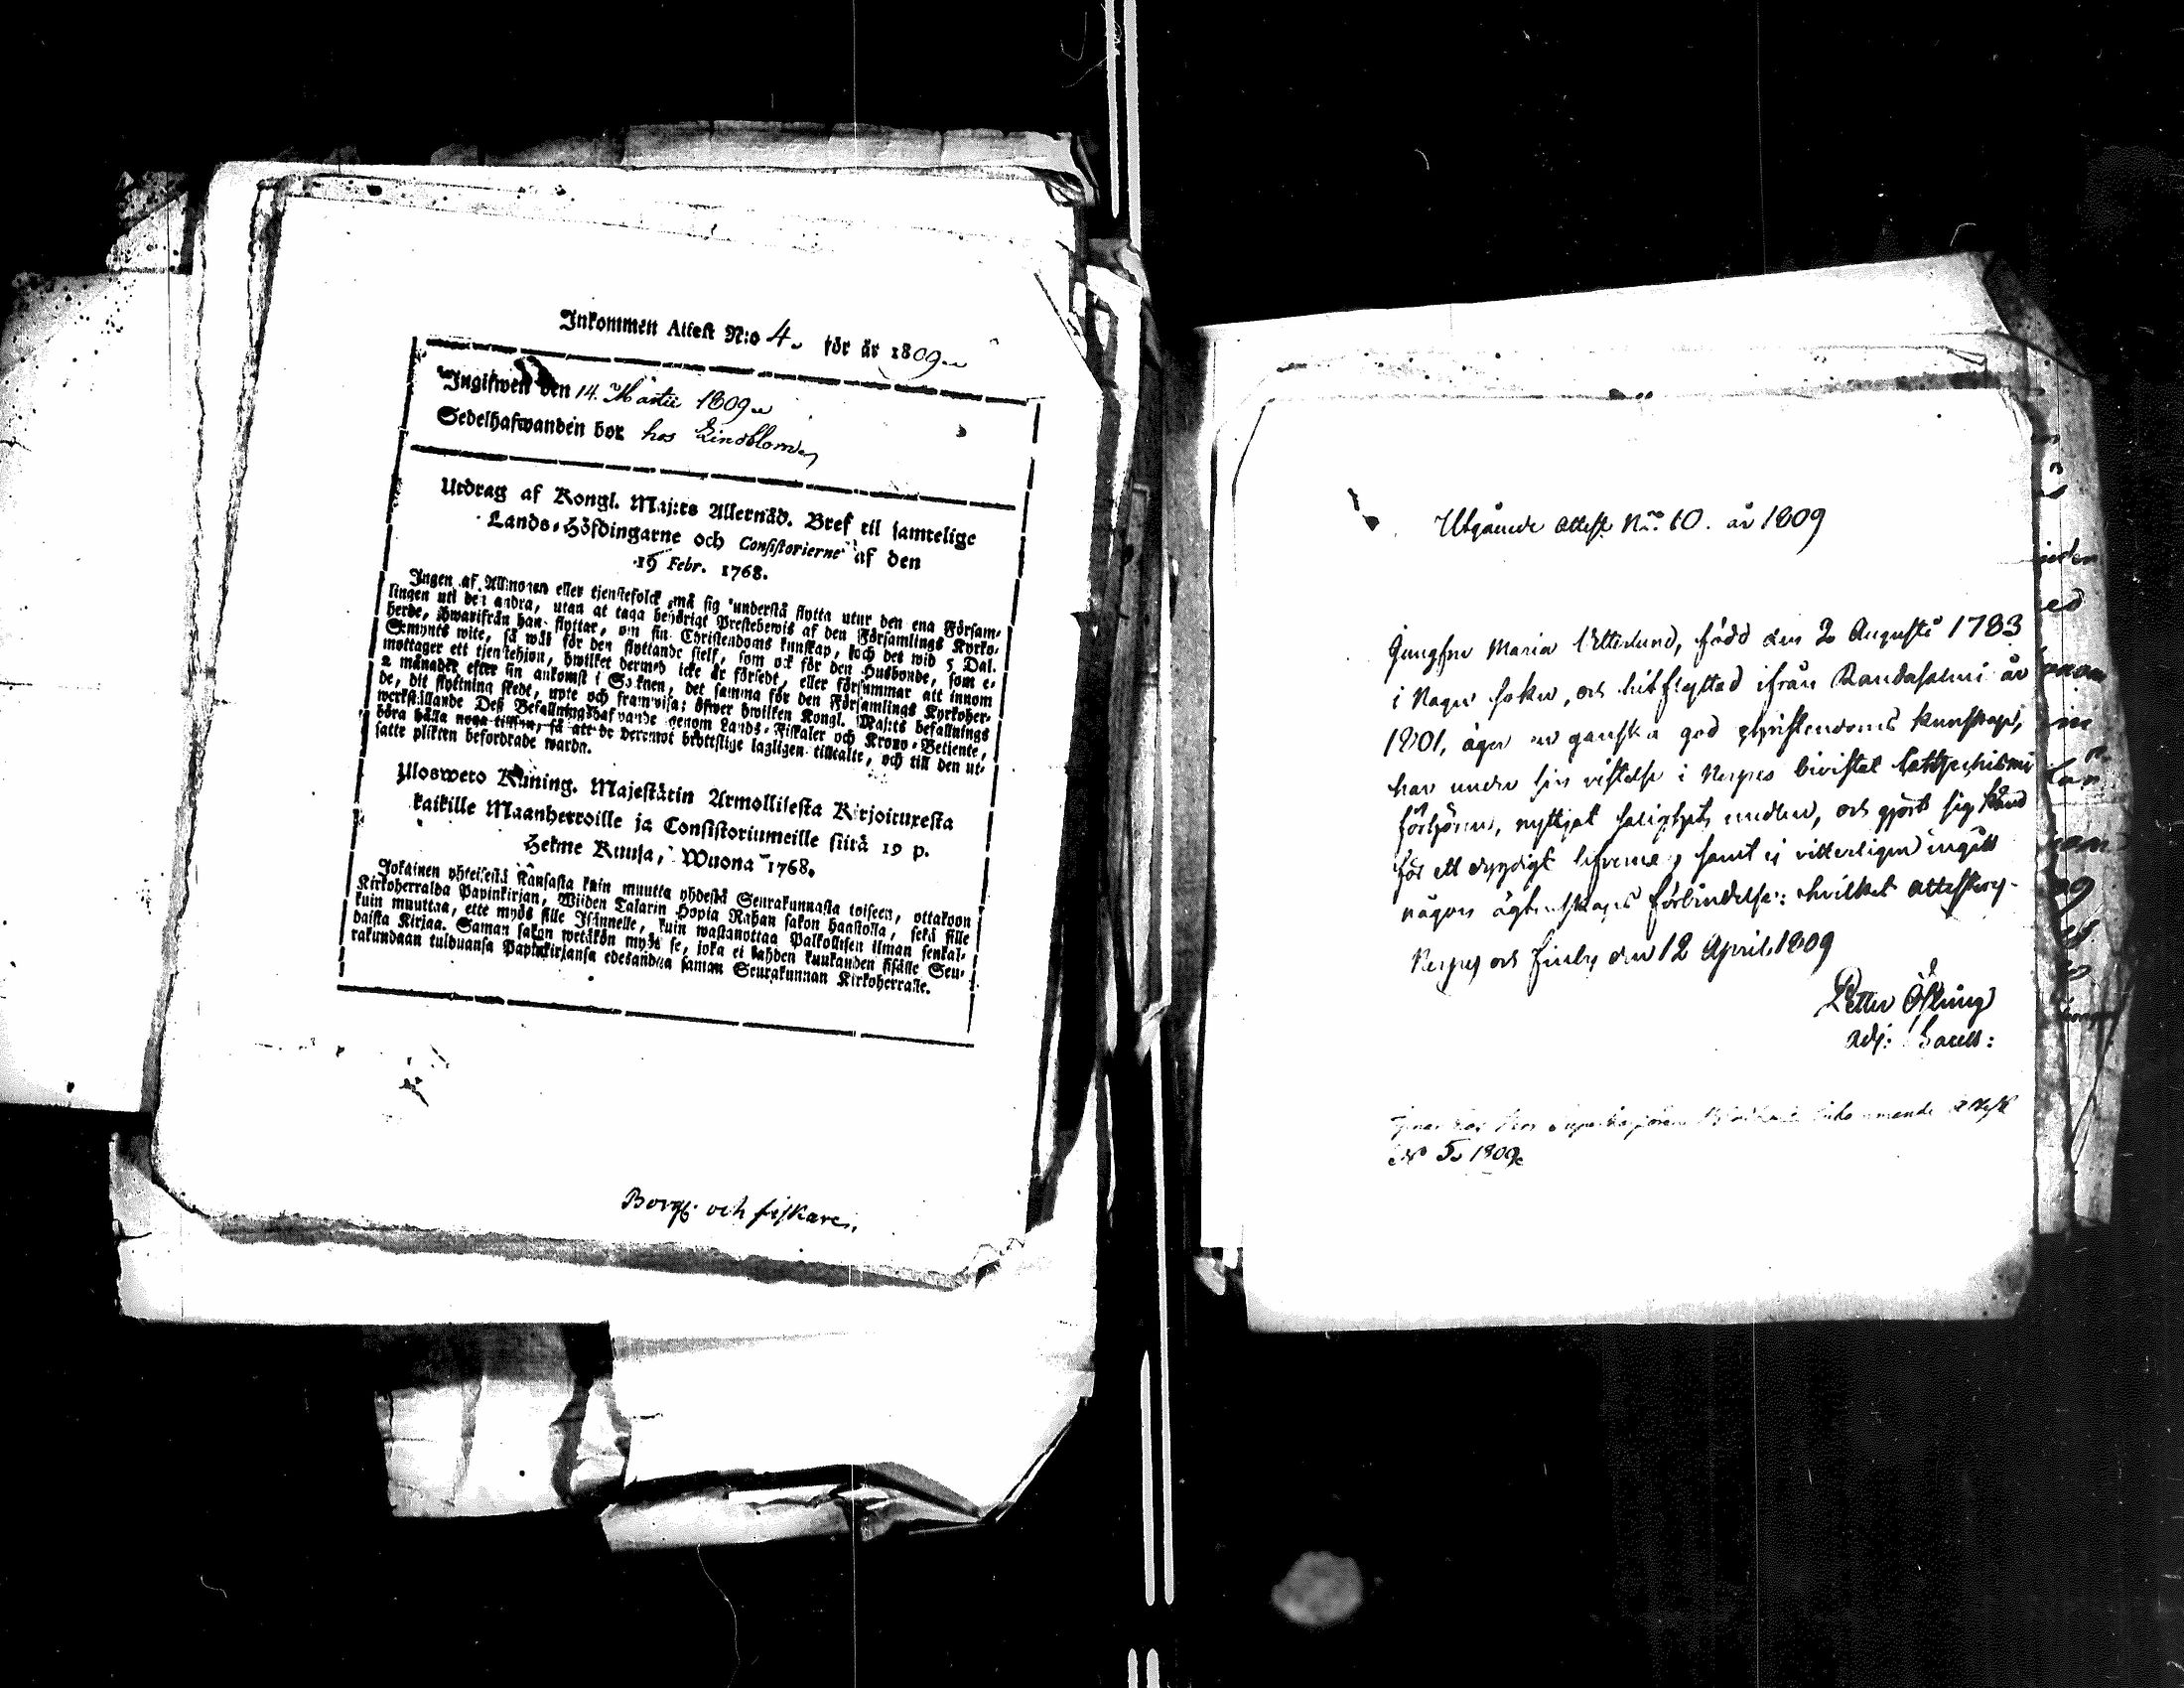 Inkommen Attest N:o 4. för år 1809.
Ingifwen den 14. Martii 1809.
Sedelhafwanden bor hos Lindblom
Utdrag af Kongl. Maj:ts Allernåd. Bref til samtelige
Lands-Höfdingarne och Consistorierne af den
19 Febr. 1768.
Ingen af Allmogen eller tjenstefolck må sig understå flytta utur den ena Försam-
lingen uti den andra, utan at taga behörigt Prestebewis af den Församlings Kyrko-
herde, hwarifrån han flyttar, om sin Christendoms kunskap, och det wid 5 Dal.
S:mynts wite, så wäl för den flyttande sielf, som ock för den Husbonde, som e-
mottager ett tjenstehjon, hwilket dermed icke är försedt, eller försummar att innom
2 månader efter sin ankomst i Socknen, det samma för den Församlings Kyrkoher-
de, dit flyttning skedt, upte och framwisa; öfwer hwilken Kongl. Maj:ts befallnings
werkställande Deß Befallningshafwande genom Lands-Fiskaler och Krono-Betiente,
böra hålla noga tilsyn, så att de deremot brottslige lagligen tilltalte, och till den ut-
satte plikten befordrade warda.
Ulosweto Kuning. Majestätin Armollisesta Kirjoituxesta
kaikille Maanherroille ja Consistoriumeille siitä 19 p.
Helme Kuusa, Wuona 1768.
Jokainen yhteisestä Kansasta kuin muutta yhdestä Seurakunnasta toiseen, ottakoon
Kirkoherralda Papinkirjan, Wiiden Talarin Hopia Rahan sakon haastolla, sekä sille
kuin muuttaa, ette myös sille Isännelle, kuin wastanottaa Palkollisen ilman senkal-
daista Kirjaa. Saman sakon wetäkön myös se, joka ei kahden kuukauden sisälle Seu-
rakundaan tulduansa Papinkirjansa edesandaa saman Seurakunnan Kirkoherralle.
Borg. och fiskare.
Utgående attest N:o 10. år 1809
Jungfru Maria Etterlund, född den 2 Augusti 1783
i Nagu sokn, och hitflyttad ifrån Randasalmi år
1801, äger en ganska god christendoms kunskap,
har under sin vistelse i Nerpes bivistat Catechismi
förhören, nyttjat salighets medlen, och gjort sig känd
för ett dygdigt lefverne, samt ej vitterligen ingått
någon ägtenskaps förbindelse: hvilket attesteras.
Nerpes och Finby den 12 April 1809
Petter Öfling
adj: Sacell:
inkommende Attest
N:o 5. 1809.